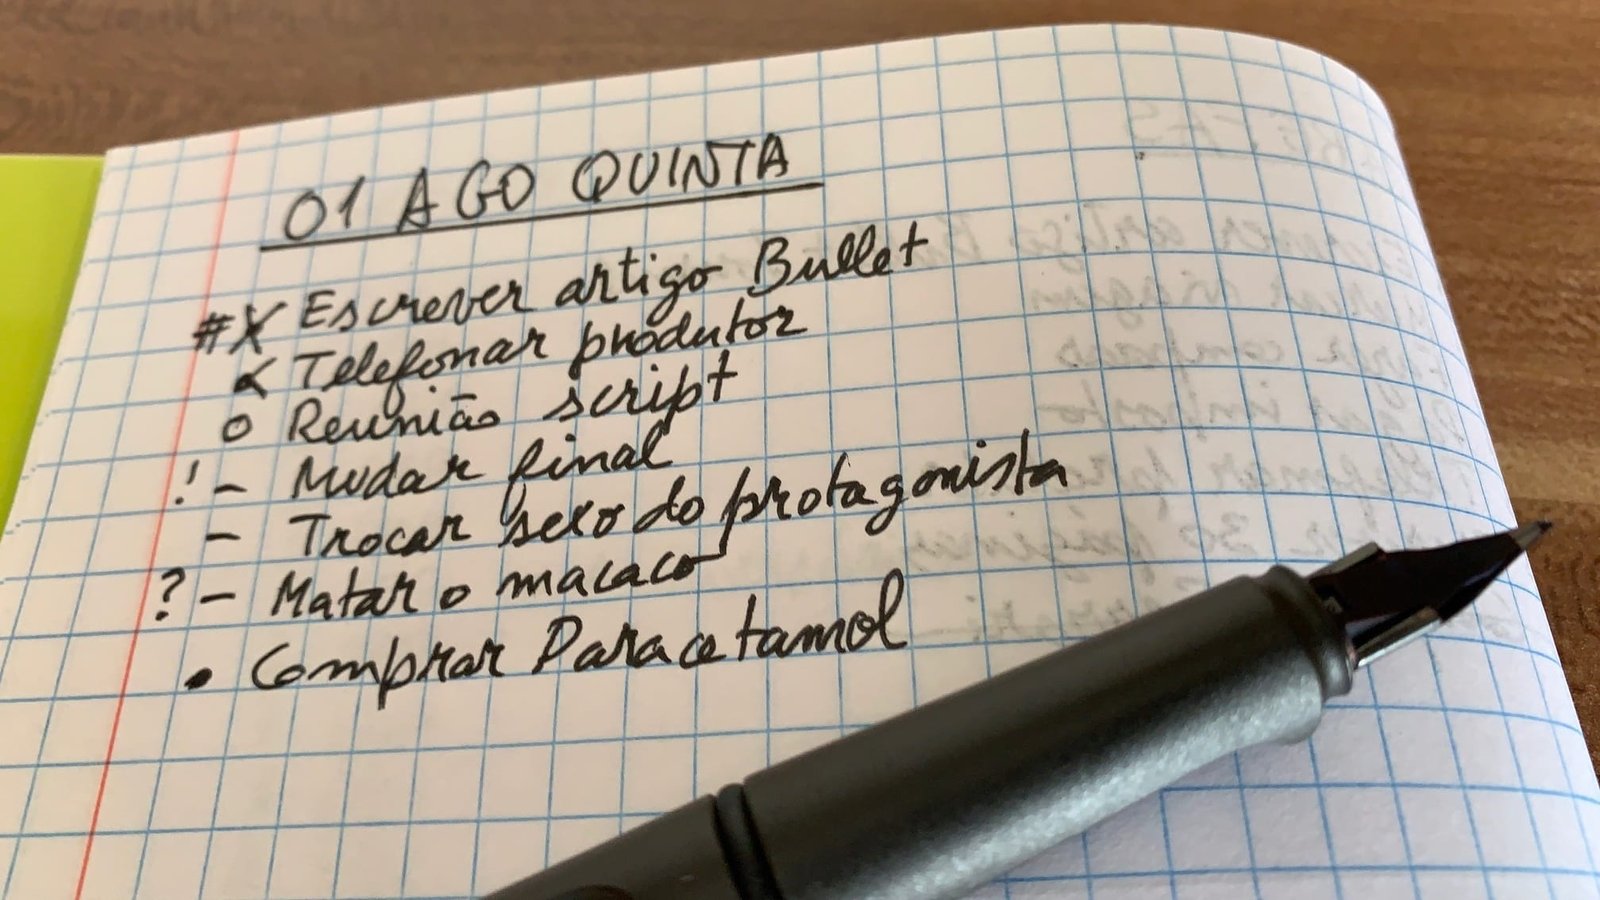 01 AGO QUINTA
#X Escrever artigo Bullet
< Telefonar produtor
o Reunião script
! - Mudar final
- Trocar sexo do protagonista
? - Matar o macaco
• Comprar Paracetamol